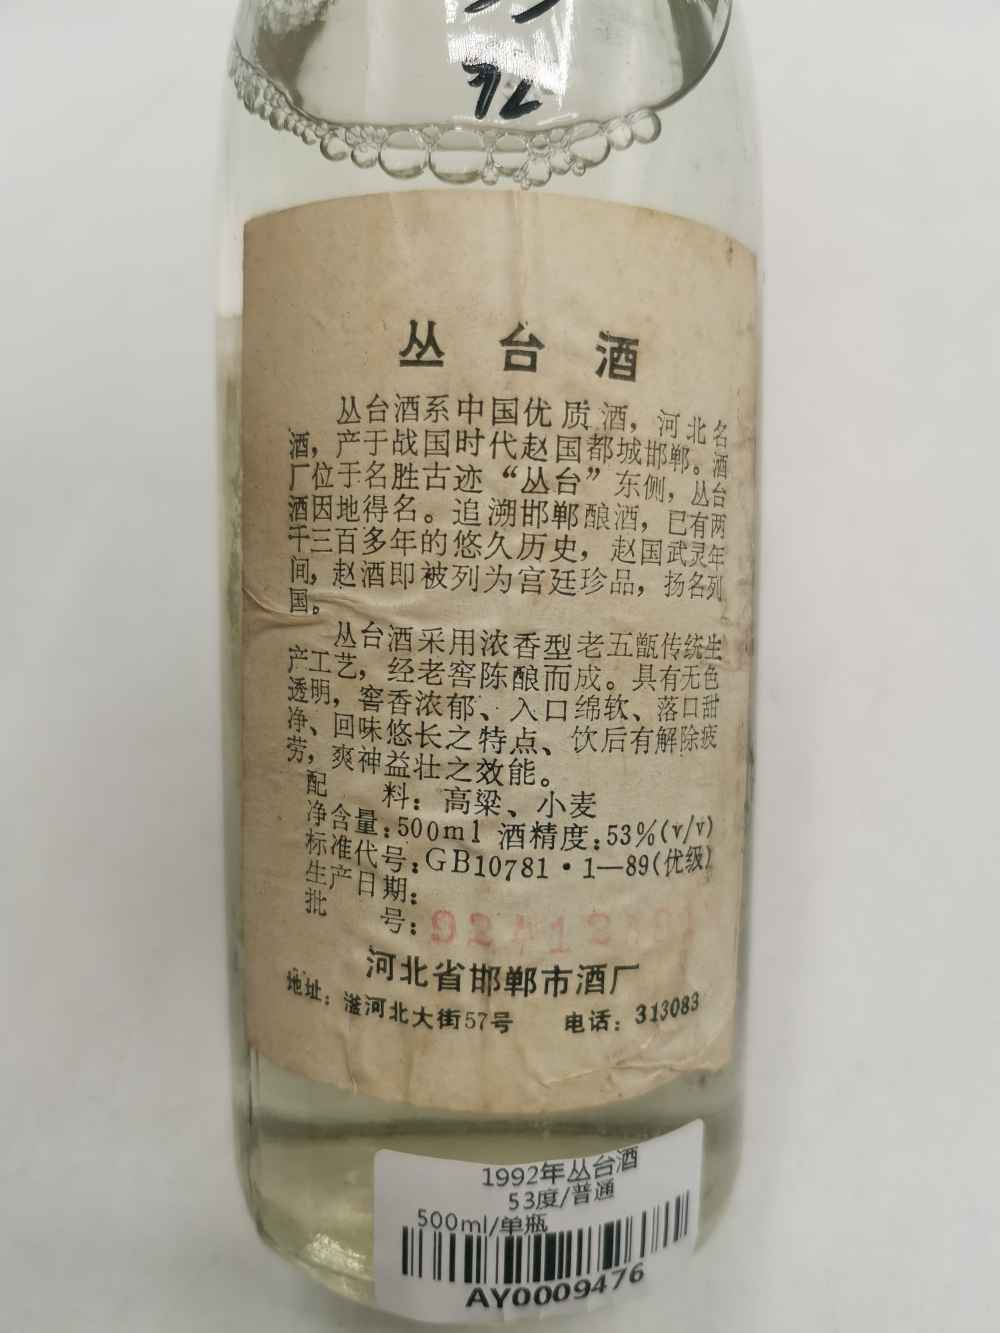 92
丛台酒
丛台酒系中国优质酒，河北名
酒，产于战国时代赵国都城邯郸。酒
厂位于名胜古迹“丛台”东侧，丛台
酒因地得名。追溯邯郸酿酒，已有两
千三百多年的悠久历史，赵国武灵年
间，赵酒即被列为宫廷珍品，扬名列
国。
丛台酒采用浓香型老五甑传统生
产工艺，经老窖陈酿而成。具有无色
透明，窖香浓郁、入口绵软、落口甜
净、回味悠长之特点、饮后有解除疲
劳，爽神益壮之效能。
配料：高粱、小麦
净含量：500ml 酒精度：53%(v/v)
标准代号：GB10781·1—89(优级)
生产日期：
批号：
河北省邯郸市酒厂
地址：滏河北大街57号 电话：313083
1992年丛台酒
53度/普通
500ml/单瓶
AY0009476